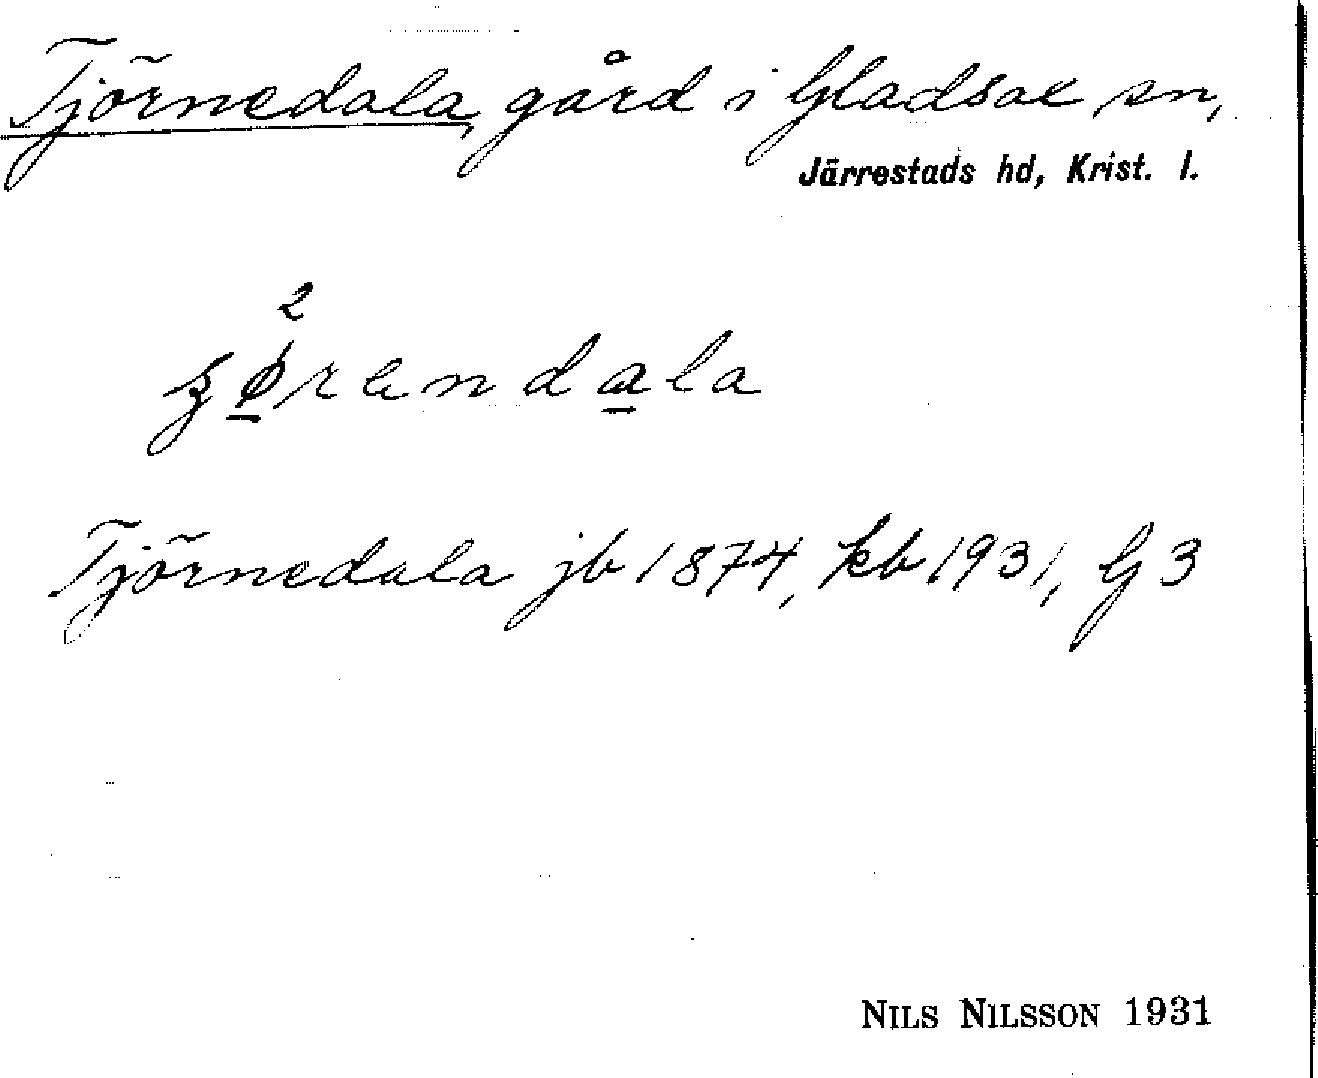 Tjörnedala, gård i Gladsax sn,
Järrestads hd, Krist. l.
2
Tjörnedala jb 1874, kb 1931, G 3
NILS NILSSON 1931